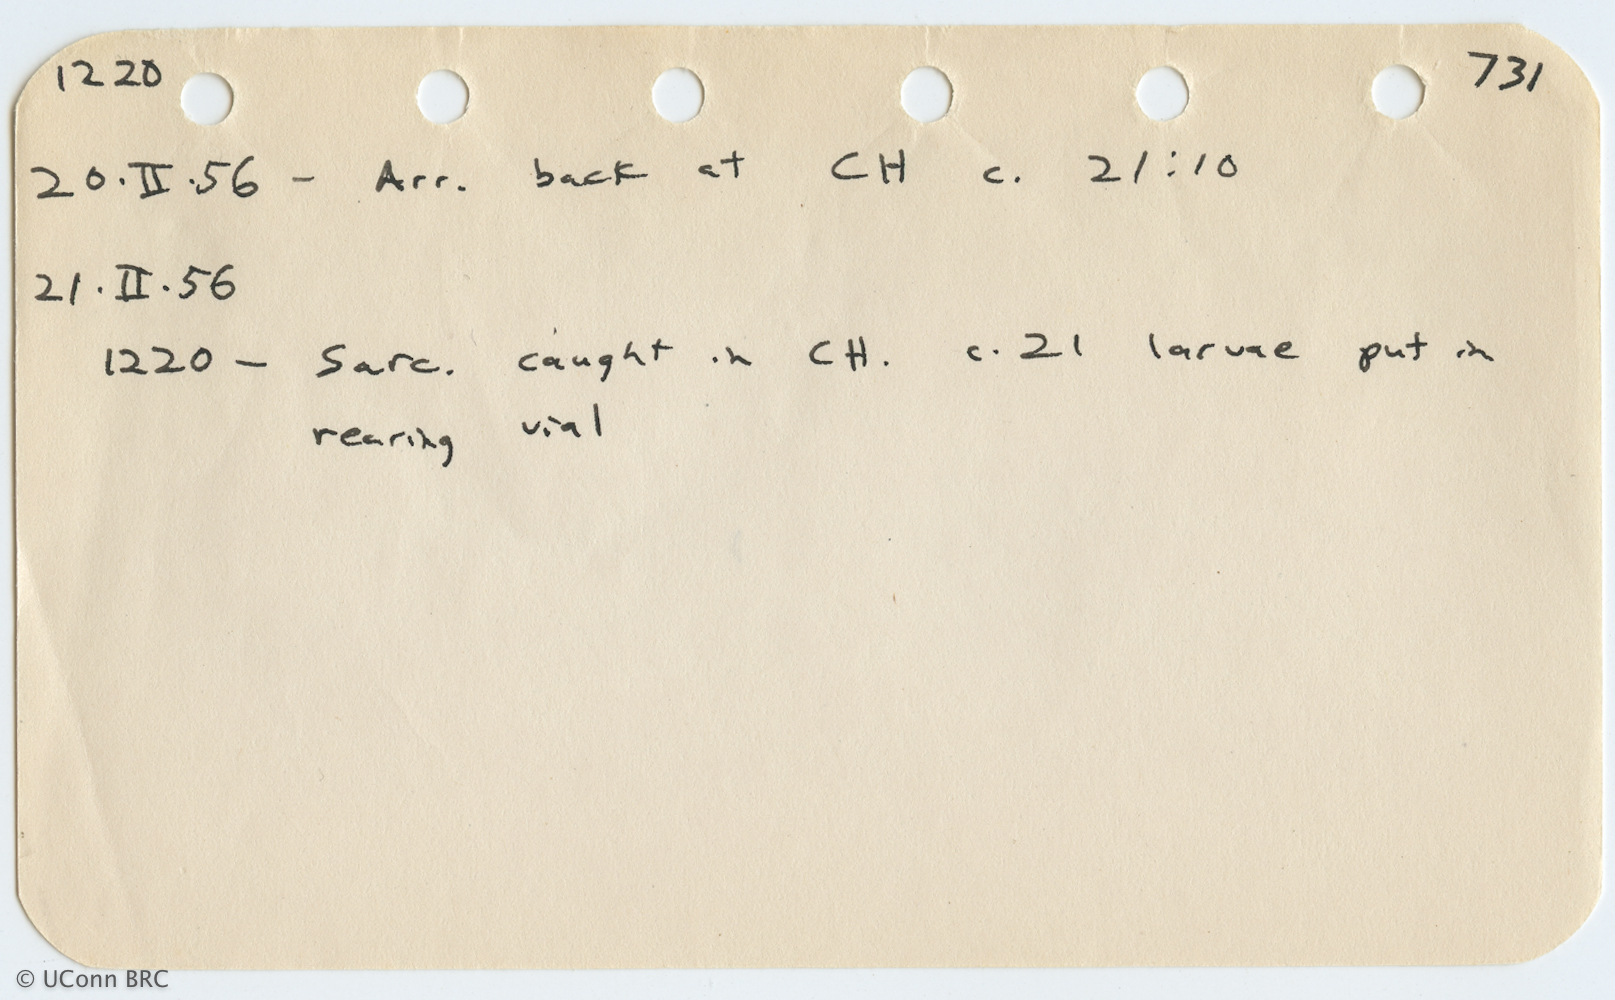 1220 731
20.II.56 - Arr. back at CH c. 21:10
21.II.56
1220 - Sarc. caught in CH. c. 21 larvae put in
rearing vial
© UConn BRC